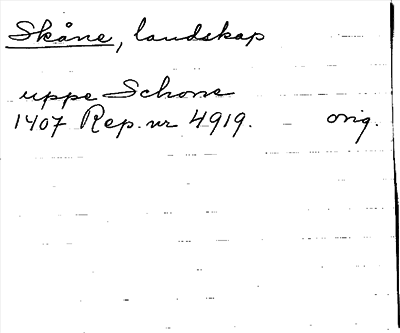 Skåne, landskap
uppe Schone
1407 Rep. nr 4919. - orig.